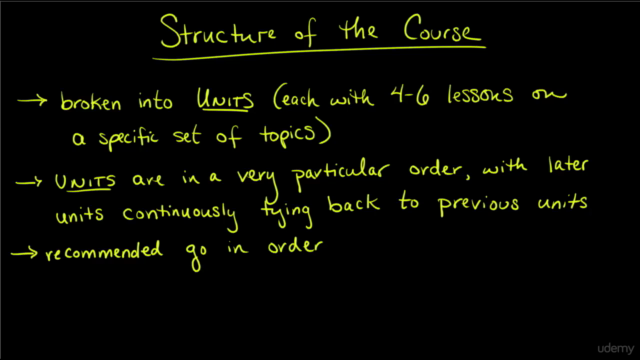 Structure of the Course
→ broken into UNITS (each with 4-6 lessons on
a specific set of topics)
→ UNITS are in a very particular order, with later
units continuously tying back to previous units
→ recommended go in order
udemy